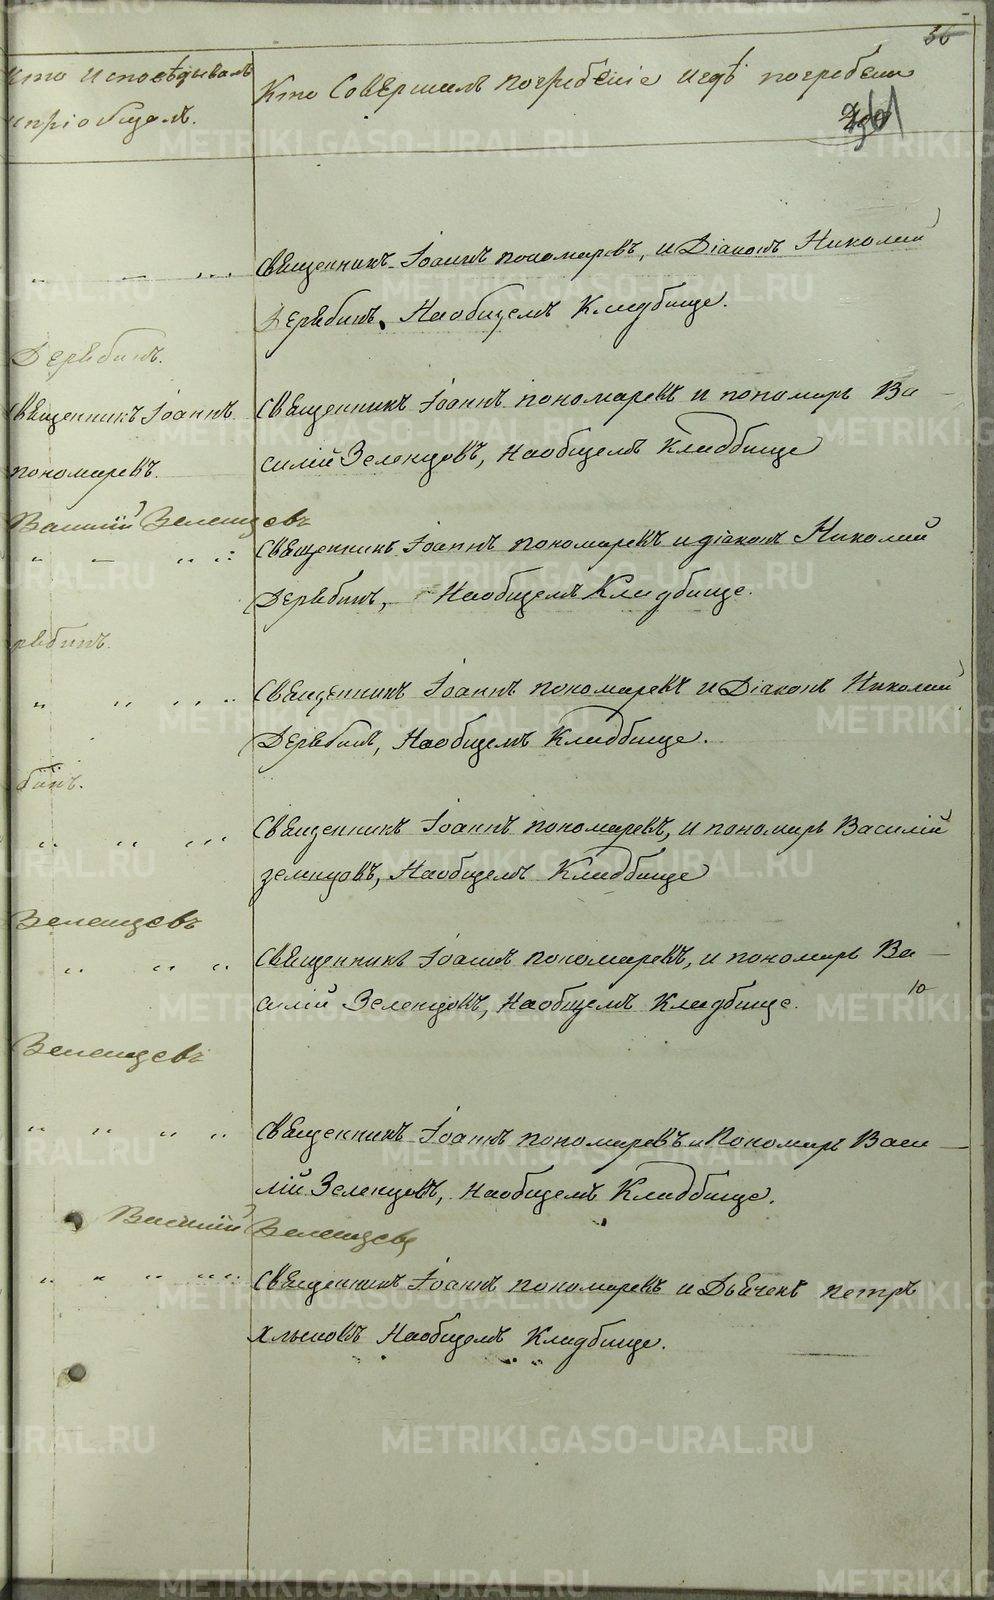 36
Кто исповѣдывалъ
и пріобщалъ.
Кто Совершалъ погребеніе и гдѣ погребены
Священникъ Іоаннъ пономаревъ, и Діаконъ Николай
Дерябинъ, На общемъ Кладбище.
Дерябинъ.
Священникъ Іоаннъ
пономаревъ.
Священникъ Іоаннъ пономаревъ и пономарь Ва-
силій Зеленцовъ, На общемъ Кладбище
Василій Зеленцовъ
Священникъ Іоаннъ пономаревъ и діаконъ Николай
Дерябинъ, На общемъ Кладбище.
рябинъ.
Священникъ Іоаннъ пономаревъ и Діаконъ Николай
Дерябинъ, На общемъ Кладбище.
бинъ.
Священникъ Іоаннъ пономаревъ, и пономарь Василій
зеленцовъ, На общемъ Кладбище
Зеленцовъ
Священникъ Іоаннъ пономаревъ, и пономарь Ва-
силій Зеленцовъ, На общемъ Кладбище. 10
Зеленцовъ
Священникъ Іоаннъ пономаревъ и Пономарь Васи-
лій Зеленцовъ, На общемъ Кладбище.
Василій Зеленцовъ
Священникъ Іоаннъ пономаревъ и Дьячекъ петръ
Хлыновъ На общемъ Кладбище.
METRIKI.GASO-URAL.RU